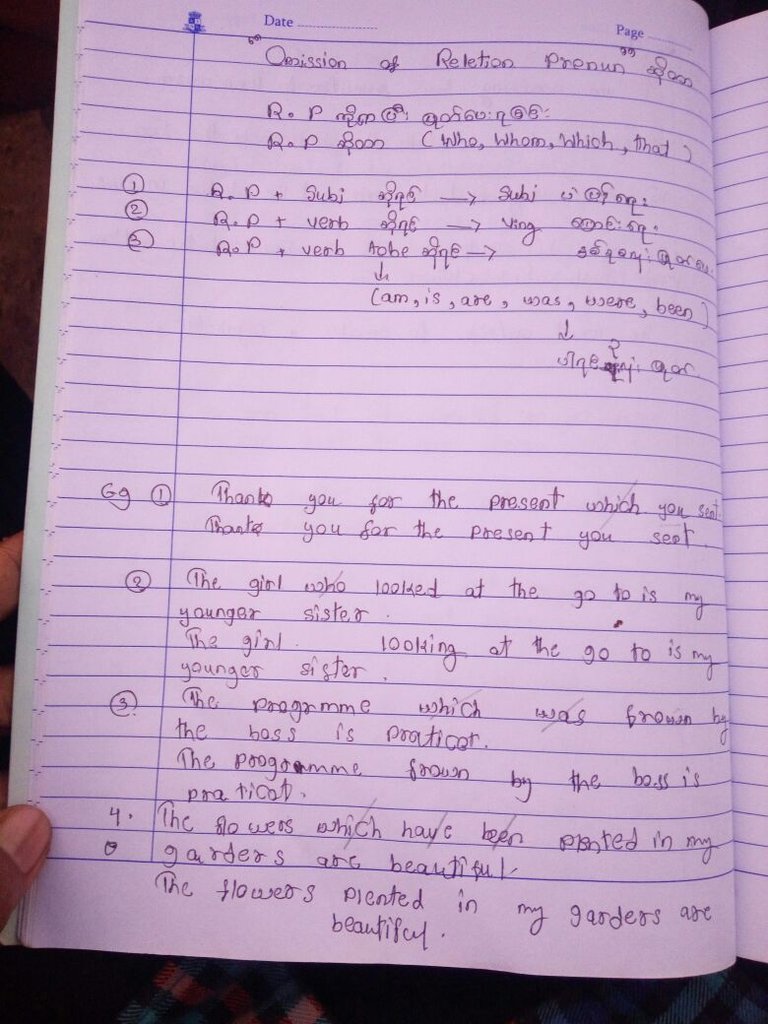 Date
Page
"Omission of Reletion Prenun" ဆိုတာ
R.P ကိုရာပြီး ဖြုတ်ပေးရခြင်း
R.P ဆိုတာ (Who, Whom, Which, that)
① R.P + Subj ဆိုရင် → Subj
② R.P + verb ဆိုရင် → Ving ပြောင်းရေး
③ R.P + verb tobe ဆိုရင် →
↓
(am, is, are, was, were, been)
↓
Eg ① Thank you for the present which you sent.
Thank you for the present you sent.
② The girl who looked at the go to is my
younger sister.
The girl looking at the go to is my
younger sister.
③ The progrmme which was frown by
the boss is praticat.
The progrmme frown by the boss is
praticat.
4. The flowers which have been plented in my
garders are beautiful.
The flowers plented in my garders are
beautiful.